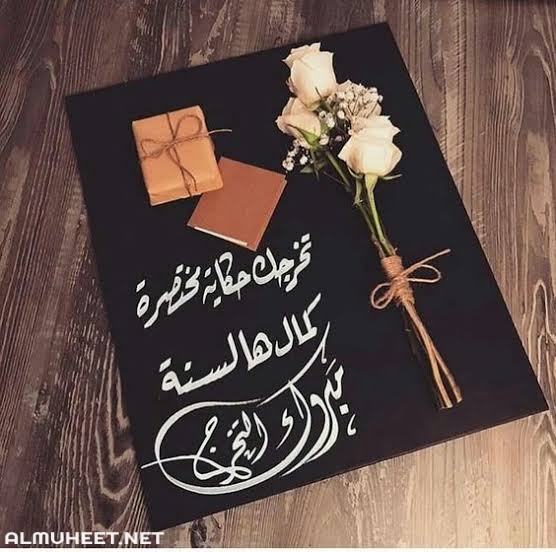 تخرجك حكاية مختصرة
كمال هالسنة
مبروك التخرج
ALMUHEET.NET